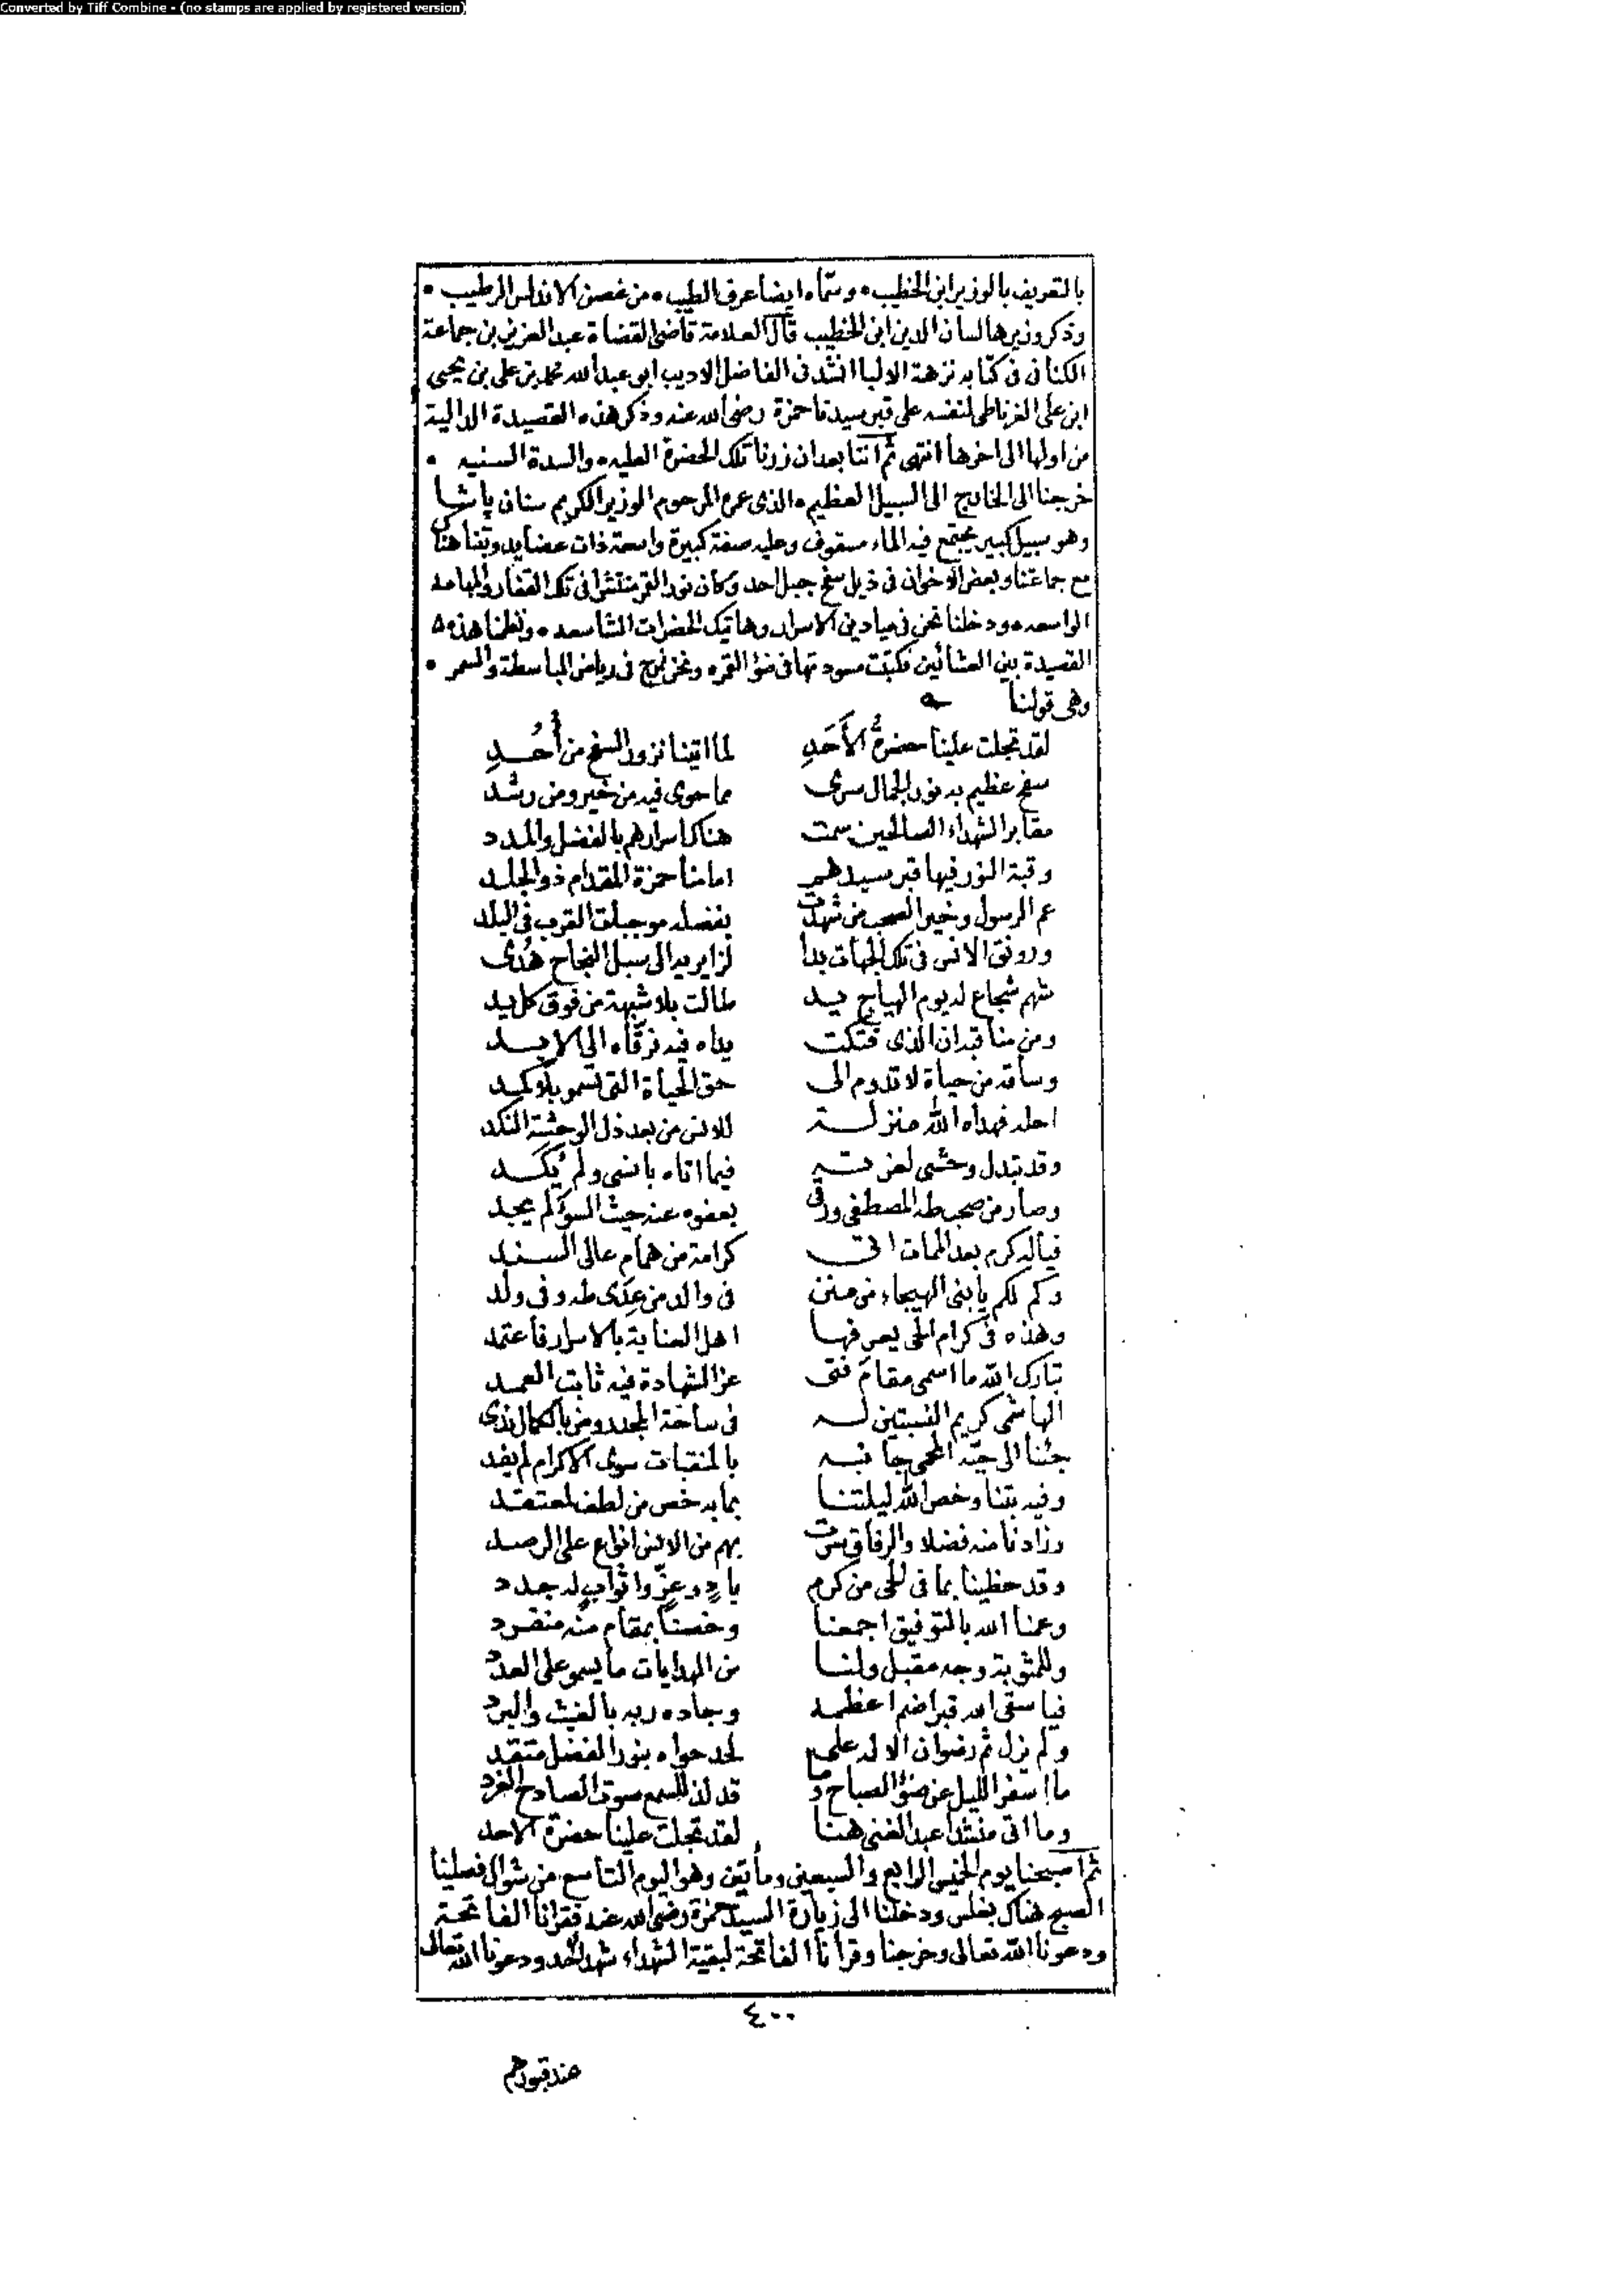 Converted by Tiff Combine - (no stamps are applied by registered version)
بالتعريف بالوزير ابن الخطيب • وسماه ايضا عرف الطيب • من غصن الاندلس الرطيب •
وذكر وزيرها لسان الدين ابن الخطيب قال العلامة قاضي القضاة عبد العزيز بن جماعة
الكناني في كتابه نزهة الالبا انشدني الفاضل الاديب ابو عبد الله محمد بن علي بن يحيى
ابن علي الغرناطي لنفسه على قبر سيدنا حمزة رضي الله عنه وذكر هذه القصيدة الدالية
من اولها الى اخرها انتهى ثم اننا بعد ان زرنا تلك الحضرة العليه • والسدة السنيه •
خرجنا الى الخارج الى السبيل العظيم • الذى عمره المرحوم الوزير الكريم سنان باشا
وهو سبيل كبير يجتمع فيه الماء مسقوف وعليه صفة كبيرة واسعة ذات عضايد وبتنا هناك
مع جماعتنا وبعض الاخوان في ذيل سفح جبل احد وكان نور القمر منتشرا في تلك القفار والمهامه
الواسعه • ودخلنا نحن في ميادين الاسرار وهاتيك الحضرات الشاسعه • ونظمنا هذه
القصيدة بين العشائين فكتبت مسودتها في ضوء القمر • ونحن نمرح في رياض المباسطة والسمر •
وهى قولنا
لقد تجلت علينا حضرةُ الأَحَدِ لما اتينا نزور السفح من أُحُدِ
سفح عظيم به نور الجمال سرى مما حوى فيه من خير ومن رشد
مقابر الشهداء الصالحين سمت هناك اسرارهم بالفضل والمدد
وقبة النور فيها قبر سيدهم امامنا حمزة المقدام ذو الجلد
عم الرسول وخير الصحب من شهدت بفضله موجبات القرب في البلد
ورونق الانس في تلك الجهات بدا لزايريه الى سبل النجاح هُدى
شهم شجاع له يوم الهياج يد طالت بلا شبهة من فوق كل يد
ومن مناقبه ان الذى فتكت يداه فيه فرقّاه الى الابد
وساقه من حياة لا تدوم الى حق الحياة التى تسمو بلا كمد
احله فهداه الله منزلة للانس من بعد ذل الوحشة النكد
وقد تبدل وحشى لعزته فيما اتاه بانسى ولم يَكَد
وصار من صحب طه المصطفى ورقى بعفوه عنه حيث السؤ لم يجد
فياله كرم بعد الممات اتى كرامة من همام عالى السند
وكم لكم يا بنى الهيجاء من منن في والد من عِدَى طه وفي ولد
وهذه في كرام الحى يعرفها اهل العناية بالاسرار فاعتمد
تبارك الله ما اسمى مقام فتى عز الشهادة فيه ثابت العمد
الهاشمى كريم النسبتين له في ساحة المجد ومض بالكمال ندى
جئنا الى حيّه المحمي جانبه بالمنقبات سوى الاكرام لم يفد
وفيه بتنا وخص الله ليلتنا بما به خص من لطف لمعتقد
وزادنا منه فضلا والرفاق سرت بهم من الانس انواع على الرصد
وقد حظينا بما في الحى من كرم باردو عزّ واثواب له جدد
وعمنا الله بالتوفيق اجمعنا وخصنا بمقام منه منفرد
وللمثوبة وجه مقبل ولنا من الهدايات ما يسمو على العدد
فيا سقى الله قبرا ضم اعظمه وجاده ربه بالغيث والبرد
ولم يزل ثم رضوان الاله على لحد حواه بنور الفضل متقد
ما اسفر الليل عن ضؤ الصباح وما قد لذ للسمع صوت الصادح الغرد
وما اتى منشدا عبد الغنى هنا لقد تجلت علينا حضرة الاحد
ثم اصبحنا يوم الخميس الرابع والسبعين ومأتين وهو اليوم التاسع من شوال فصلينا
الصبح هناك بغلس ودخلنا الى زيارة السيد حمزة رضي الله عنه فقرانا الفاتحة
ودعونا الله تعالى وخرجنا وقرأنا الفاتحة لبقية الشهداء شهداء احد ودعونا الله تعالى
٤٠٠
عند قبورهم